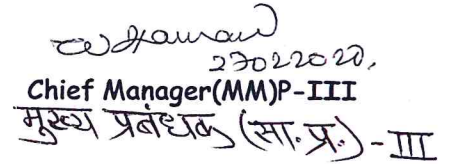 27022020,
Chief Manager(MM)P-III
मुख्य प्रबंधक (सा. प्र.) - III